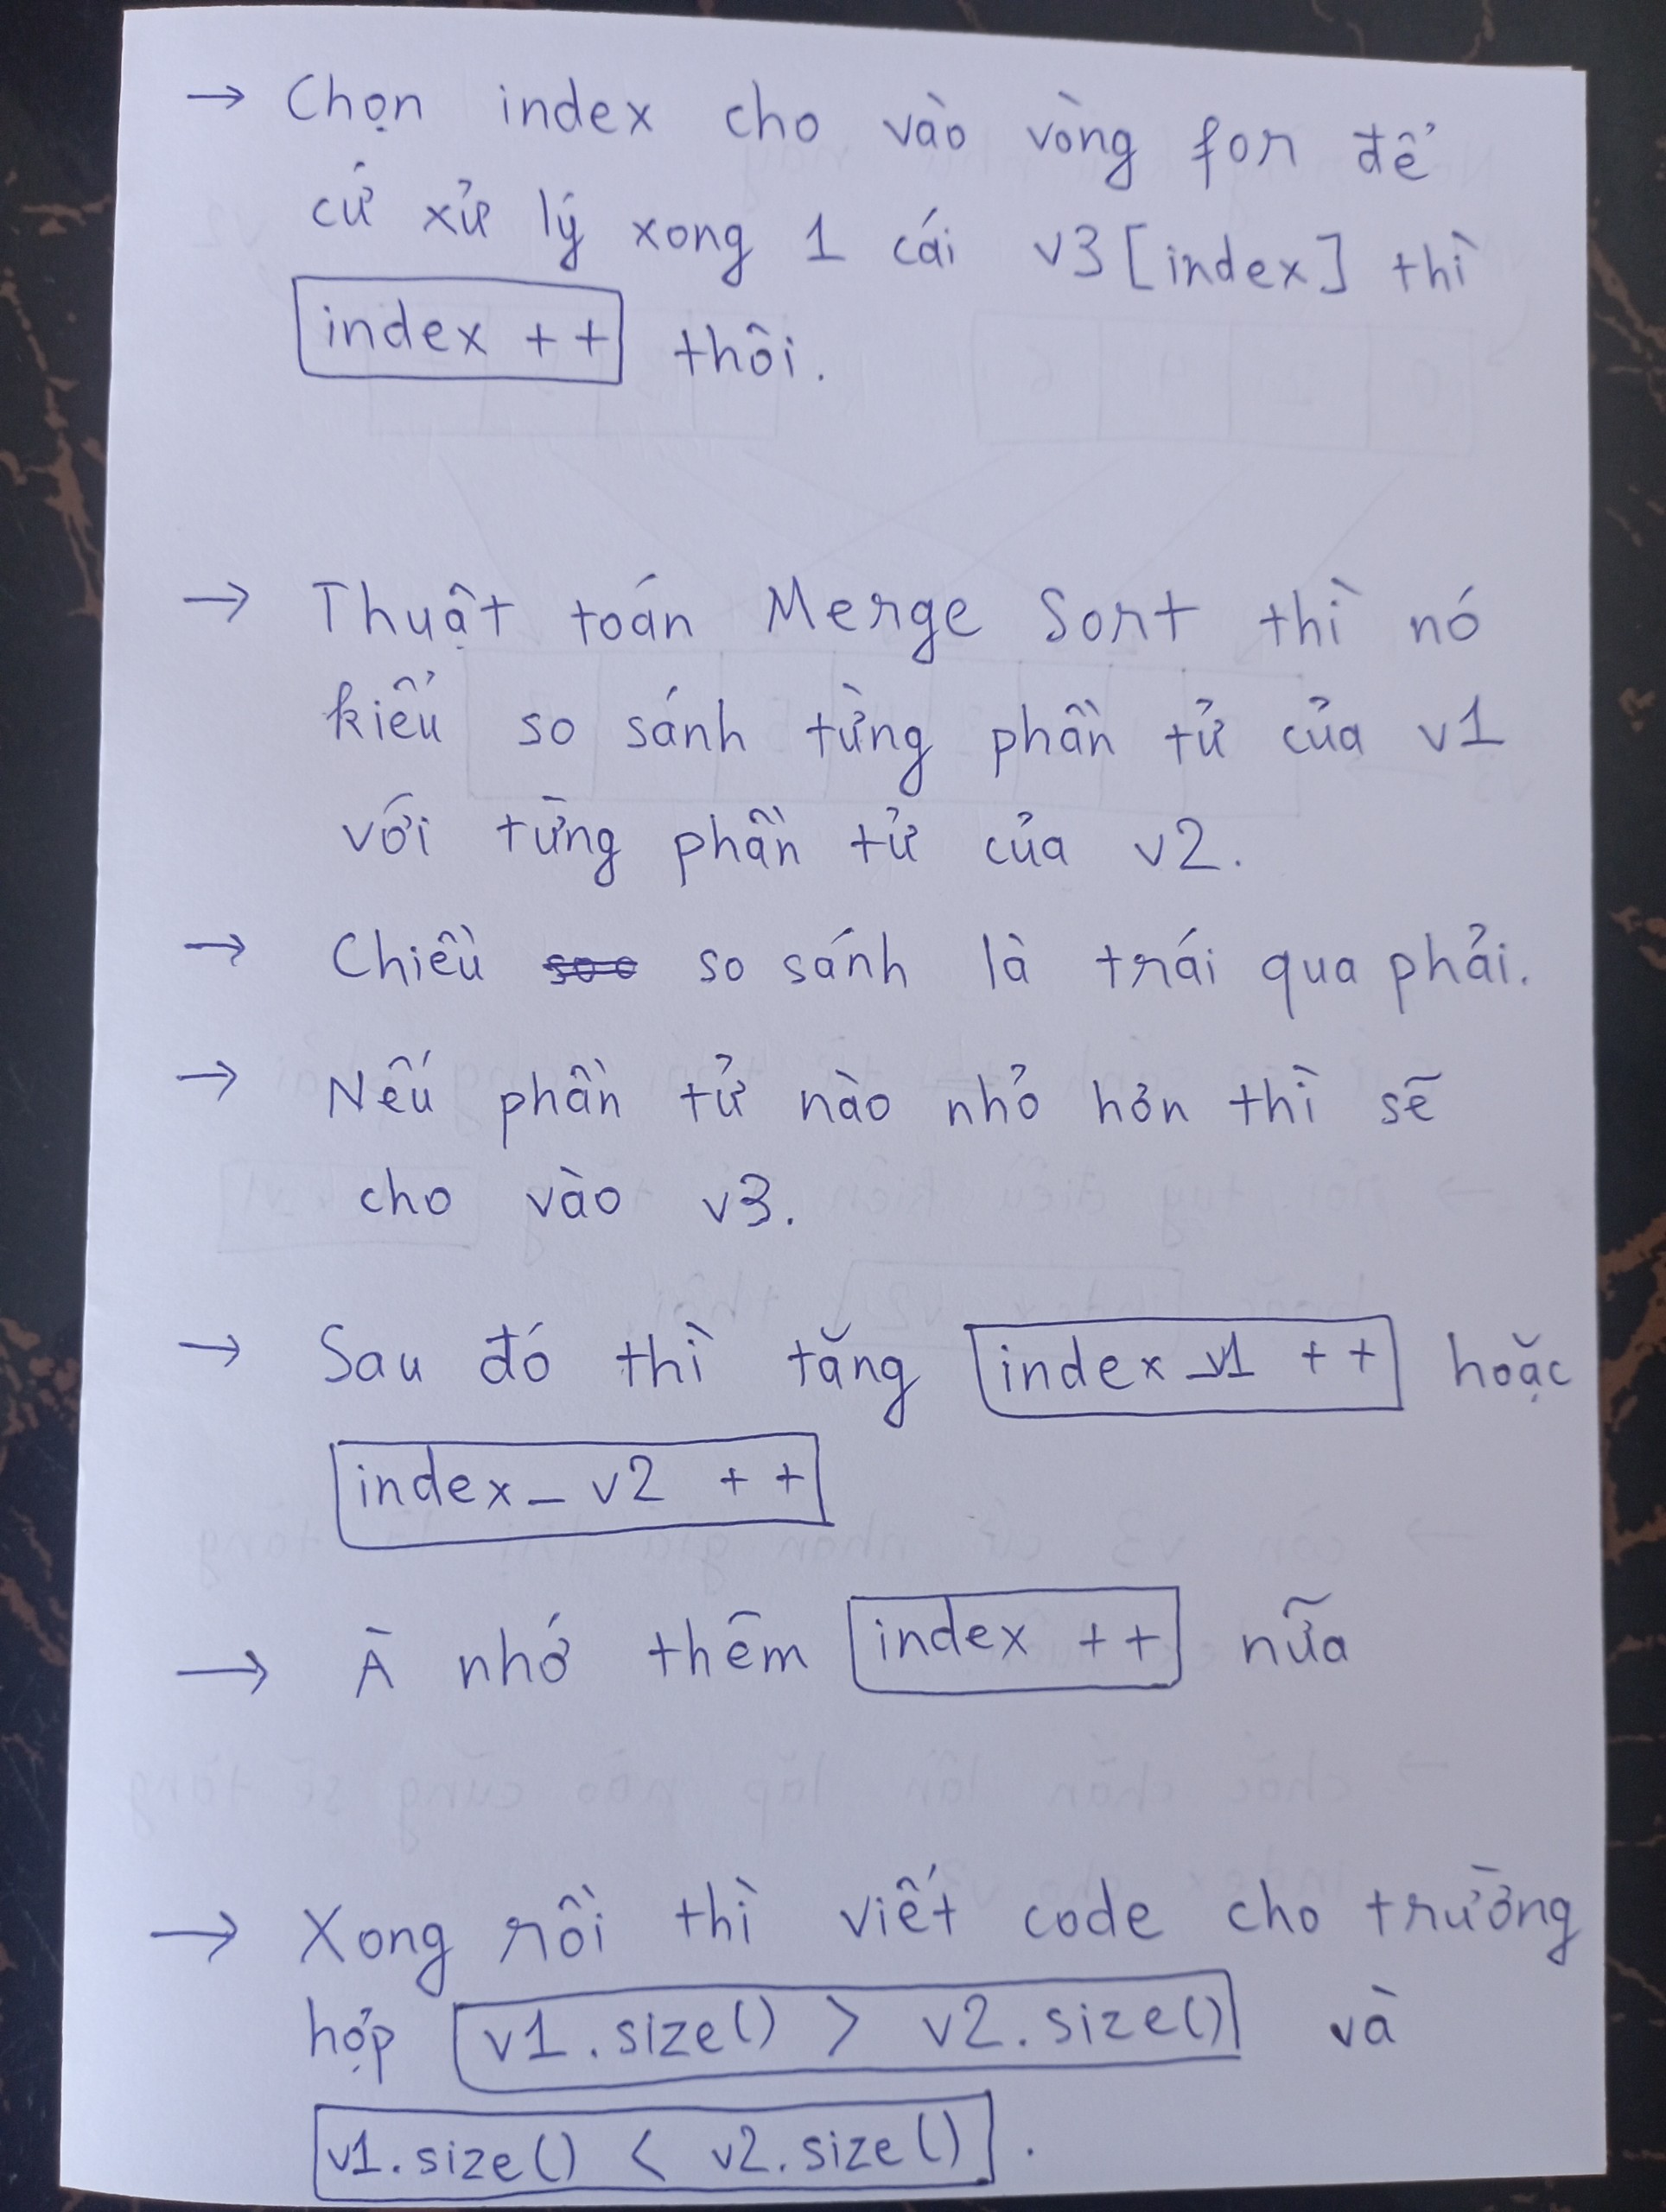 → Chọn index cho vào vòng for để
cứ xử lý xong 1 cái v3[index] thì
index ++ thôi.
→ Thuật toán Merge Sort thì nó
kiểu so sánh từng phần tử của v1
với từng phần tử của v2.
→ Chiều so sánh là trái qua phải.
→ Nếu phần tử nào nhỏ hơn thì sẽ
cho vào v3.
→ Sau đó thì tăng index_v1 ++ hoặc
index_v2 ++
→ À nhớ thêm index ++ nữa
→ Xong rồi thì viết code cho trường
hợp v1.size() > v2.size() và
v1.size() < v2.size().